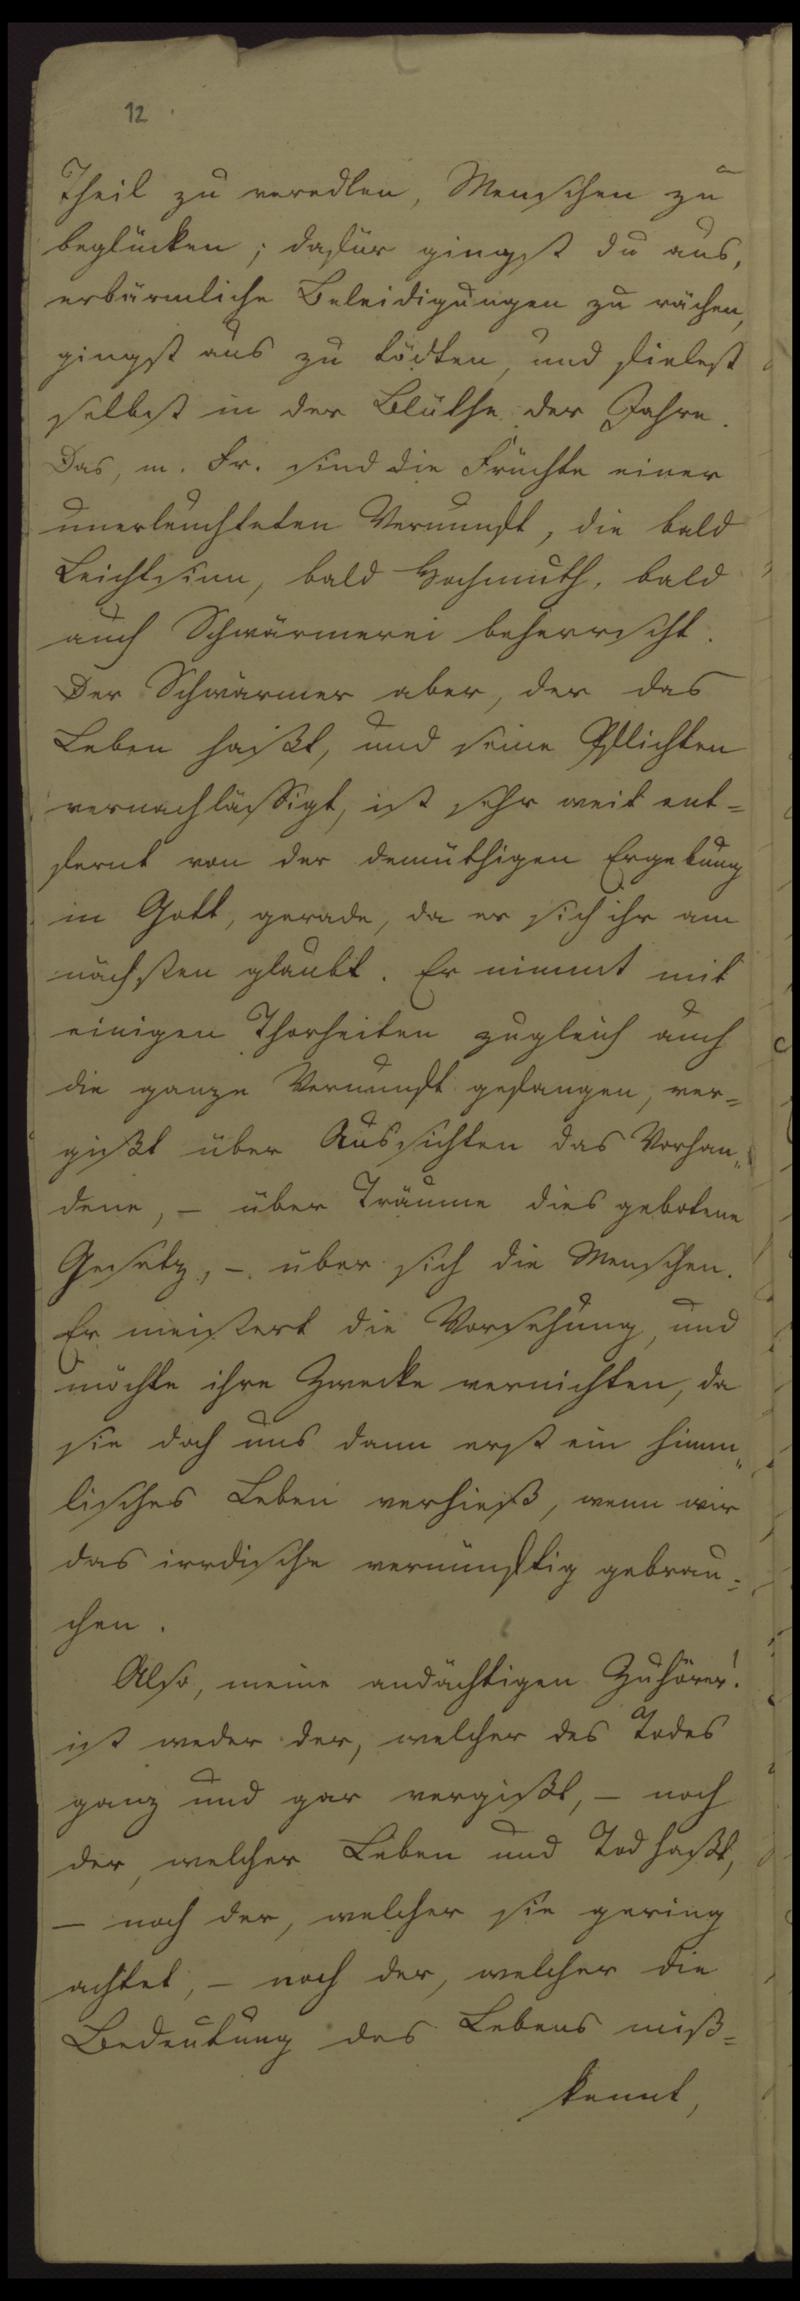 12
Theil zu veredlen, Menschen zu
beglücken; dafür gingst du aus,
erbärmliche Beleidigungen zu rächen,
gingst aus zu tödten, und fielest
selbst in der Blüthe der Jahre.
Das, m. Fr. sind die Früchte einer
unerleuchteten Vernunft, die bald
Leichtsinn, bald Hochmuth, bald
auch Schwärmerei beherrscht.
Der Schwärmer aber, der das
Leben haßt, und seine Pflichten
vernachläßigt, ist sehr weit ent=
fernt von der demüthigen Ergebung
in Gott, gerade, da er sich ihr am
nächsten glaubt. Er nimmt mit
einigen Thorheiten zugleich auch
die ganze Vernunft gefangen, ver=
gißt über Aussichten das Vorhan„
dene, – über Träume dies gebotene
Gesetz, – über sich die Menschen.
Er meistert die Vorsehung, und
möchte ihre Zwecke vernichten, da
sie doch uns dann erst ein himm„
lisches Leben verhieß, wenn wir
das irrdische vernünftig gebrau=
chen.
Also, meine andächtigen Zuhörer!
ist weder der, welcher des Todes
ganz und gar vergißt, – noch
der, welcher Leben und Tod haßt,
– noch der, welcher sie gering
achtet, – noch der, welcher die
Bedeutung des Lebens miß=
kennt,